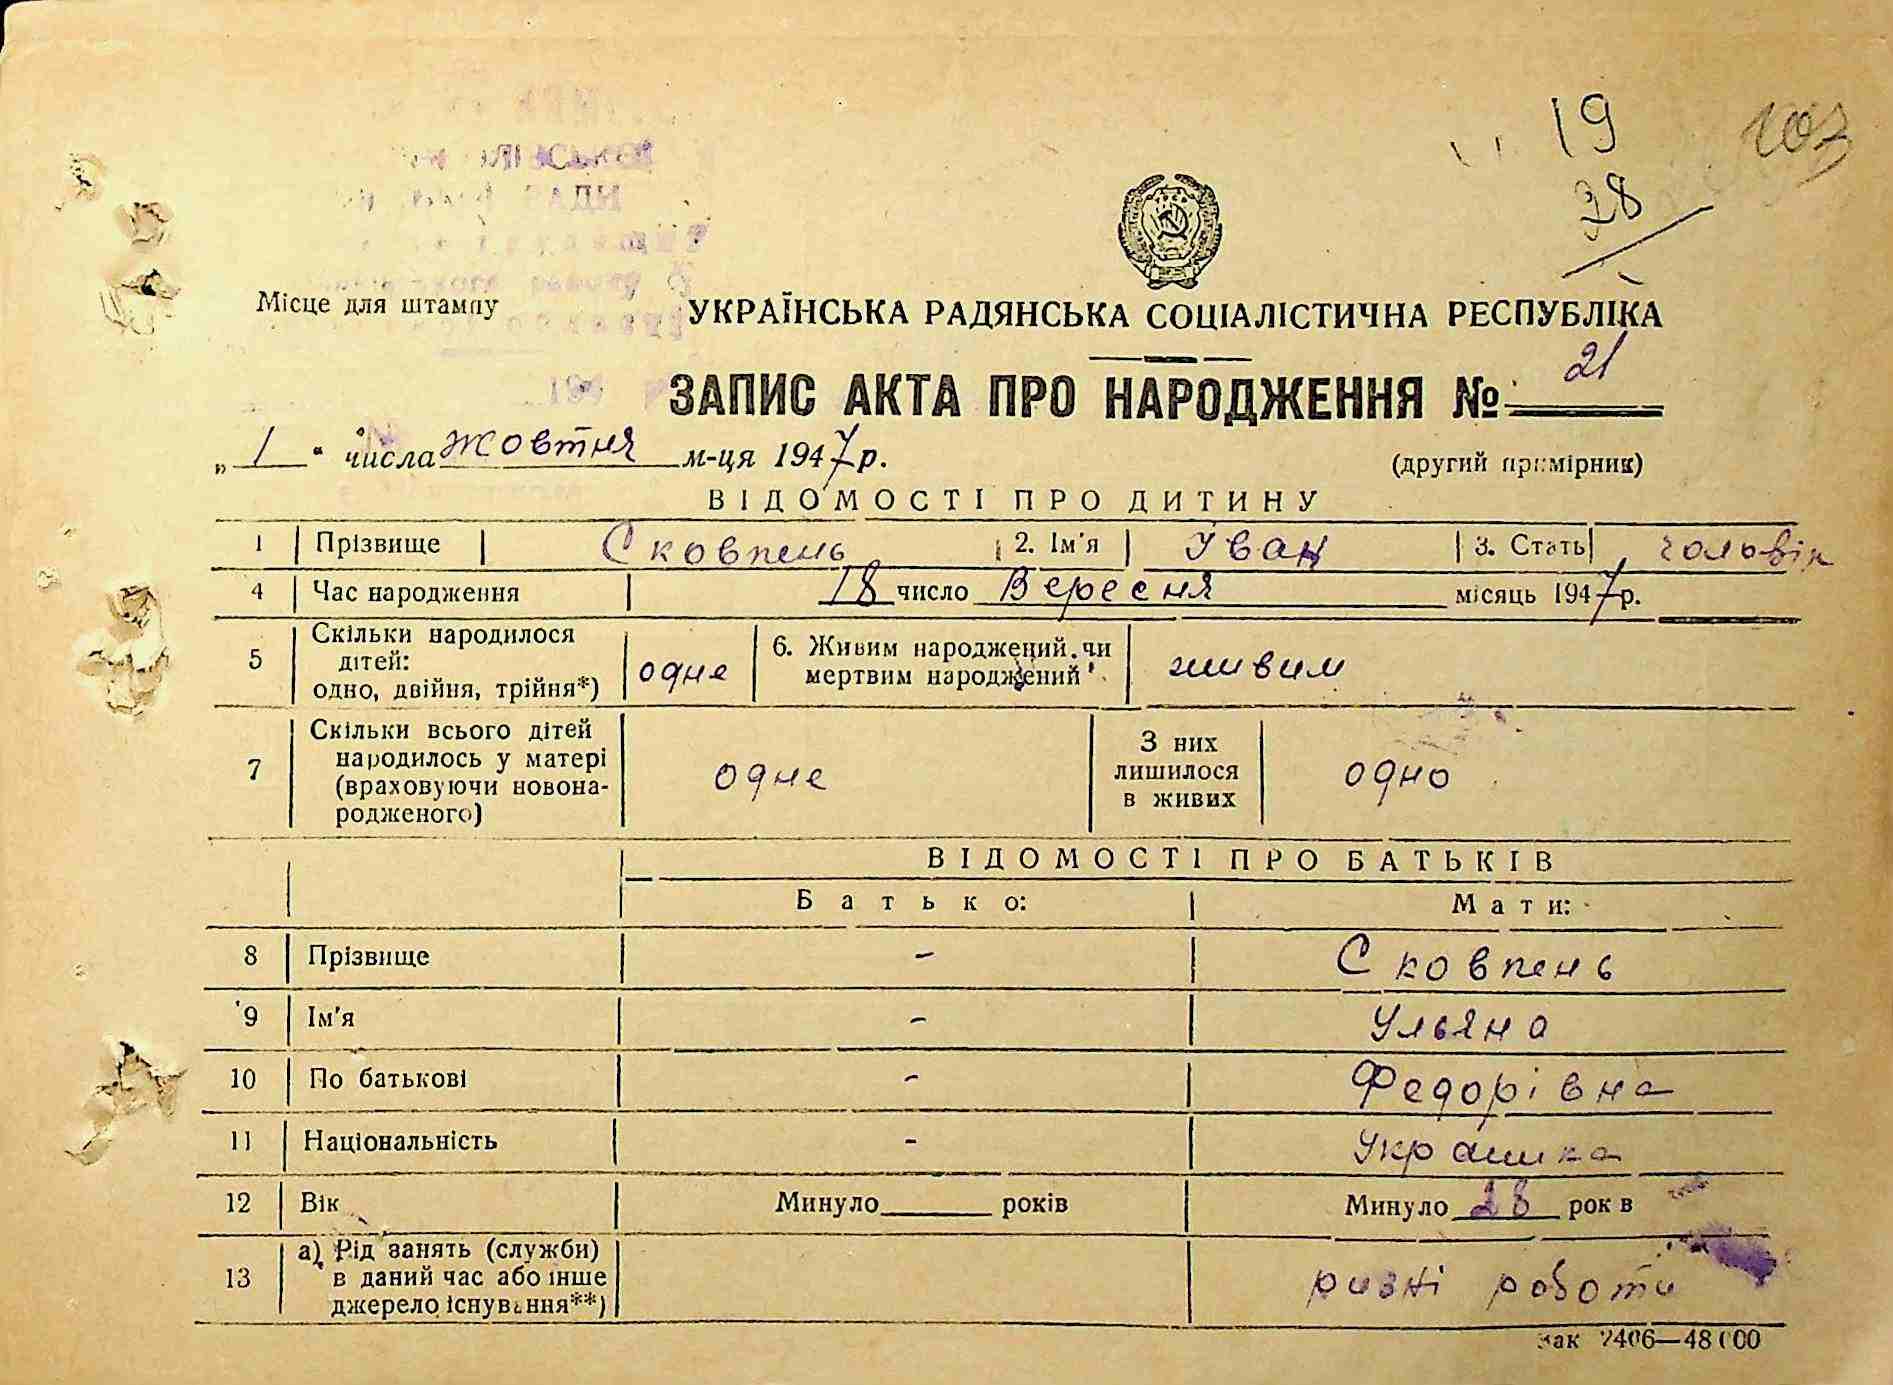 19
103
28
Місце для штампу
УКРАЇНСЬКА РАДЯНСЬКА СОЦІАЛІСТИЧНА РЕСПУБЛІКА
ЗАПИС АКТА ПРО НАРОДЖЕННЯ № 21
„ 1 " числа жовтня м-ця 1947 р.
(другий примірник)
ВІДОМОСТІ ПРО ДИТИНУ
1 Прізвище Сковпень 2. Ім'я Іван 3. Стать чоловік
4 Час народження 18 число Вересня місяць 1947 р.
5 Скільки народилося дітей: одно, двійня, трійня*) одне 6. Живим народжений чи мертвим народжений живим
7 Скільки всього дітей народилось у матері (враховуючи новонародженого) одне З них лишилося в живих одно
ВІДОМОСТІ ПРО БАТЬКІВ
Батько: Мати:
8 Прізвище - Сковпень
9 Ім'я - Ульяна
10 По батькові - Федорівна
11 Національність - Українка
12 Вік Минуло років Минуло 28 років
13 а) Рід занять (служби) в даний час або інше джерело існування**) ризні роботи
Зак 2406—48000